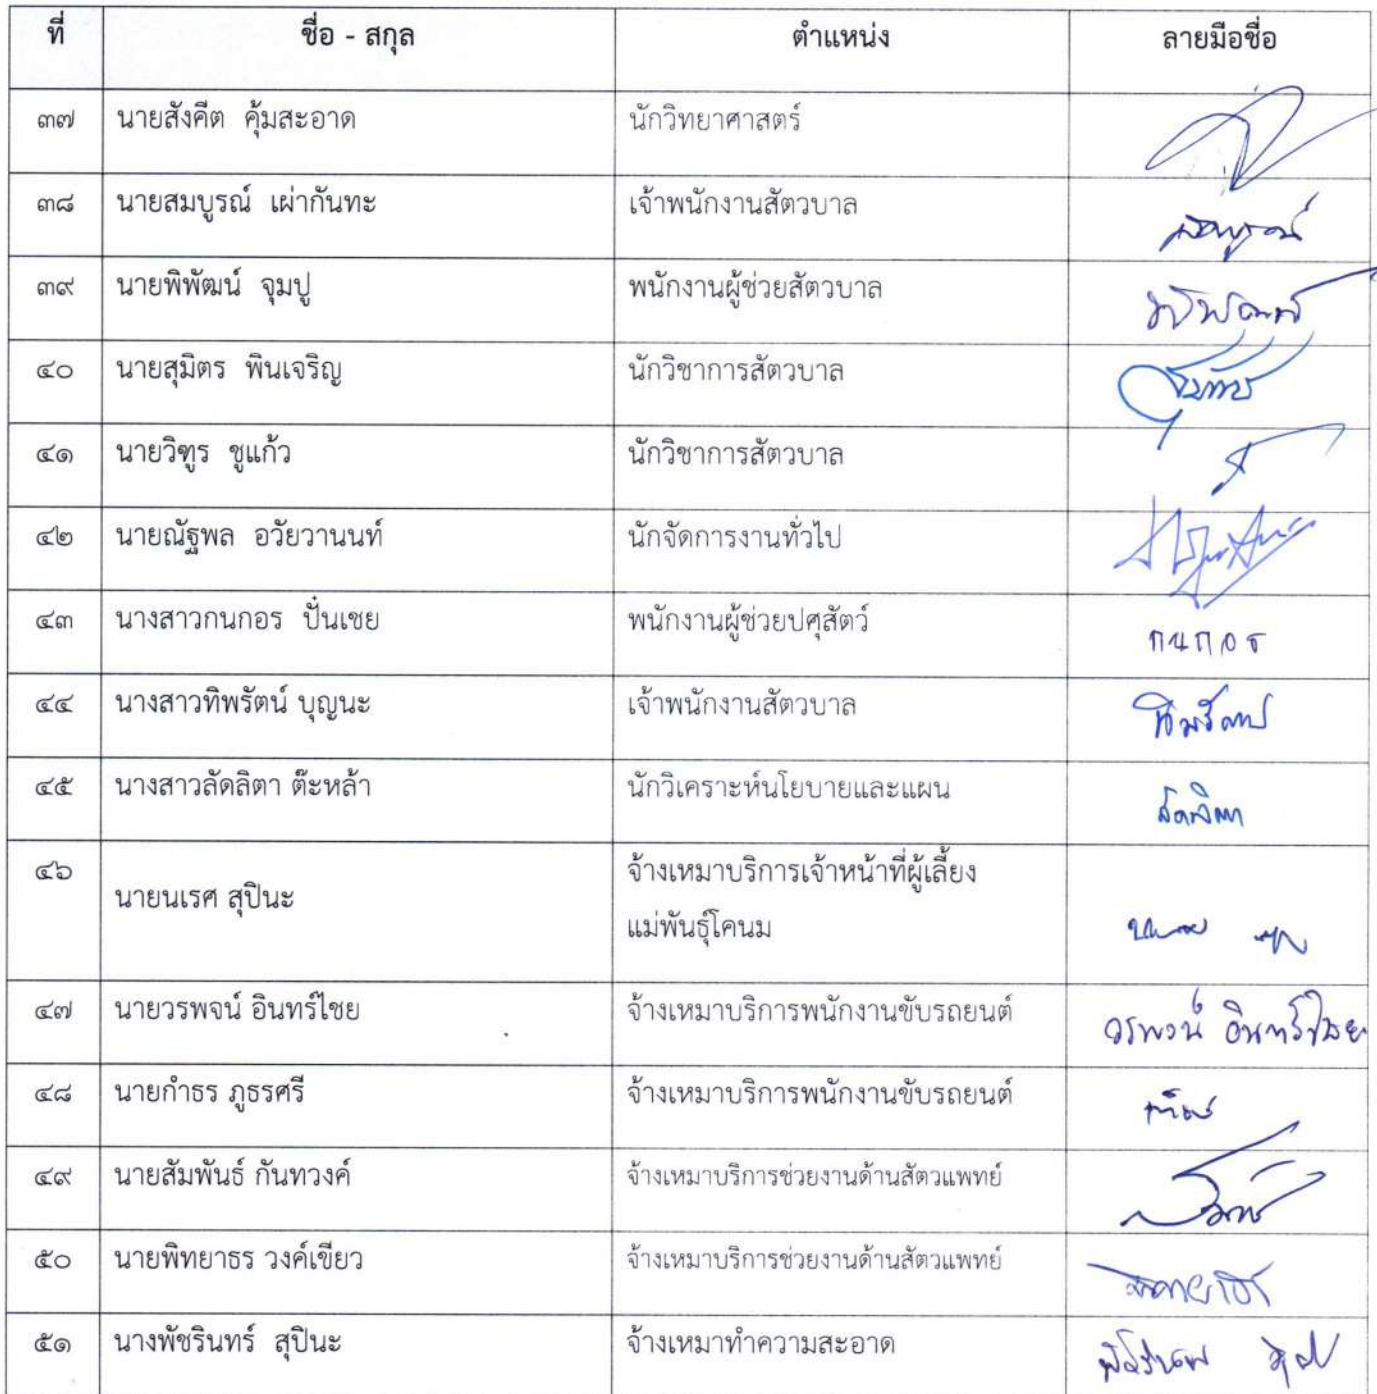 ที่ ชื่อ - สกุล ตำแหน่ง ลายมือชื่อ
๓๗ นายสังคีต คุ้มสะอาด นักวิทยาศาสตร์
๓๘ นายสมบูรณ์ เผ่ากันทะ เจ้าพนักงานสัตวบาล สมบูรณ์
๓๙ นายพิพัฒน์ จุมปู พนักงานผู้ช่วยสัตวบาล
๔๐ นายสุมิตร พินเจริญ นักวิชาการสัตวบาล
๔๑ นายวิฑูร ชูแก้ว นักวิชาการสัตวบาล
๔๒ นายณัฐพล อวัยวานนท์ นักจัดการงานทั่วไป
๔๓ นางสาวกนกอร ปั๋นเชย พนักงานผู้ช่วยปศุสัตว์ กนกอร
๔๔ นางสาวทิพรัตน์ บุญนะ เจ้าพนักงานสัตวบาล ทิพรัตน์
๔๕ นางสาวลัดลิตา ต๊ะหล้า นักวิเคราะห์นโยบายและแผน ลัดลิตา
๔๖ นายนเรศ สุปินะ จ้างเหมาบริการเจ้าหน้าที่ผู้เลี้ยง
แม่พันธุ์โคนม
๔๗ นายวรพจน์ อินทร์ไชย จ้างเหมาบริการพนักงานขับรถยนต์ วรพจน์ อินทร์ไชย
๔๘ นายกำธร ภูธรศรี จ้างเหมาบริการพนักงานขับรถยนต์
๔๙ นายสัมพันธ์ กันทวงค์ จ้างเหมาบริการช่วยงานด้านสัตวแพทย์
๕๐ นายพิทยาธร วงค์เขียว จ้างเหมาบริการช่วยงานด้านสัตวแพทย์
๕๑ นางพัชรินทร์ สุปินะ จ้างเหมาทำความสะอาด